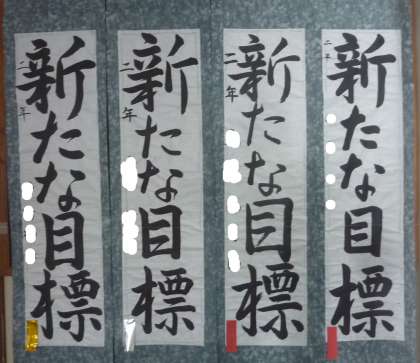 新たな目標
二年
新たな目標
二年
新たな目標
二年
新たな目標
二年